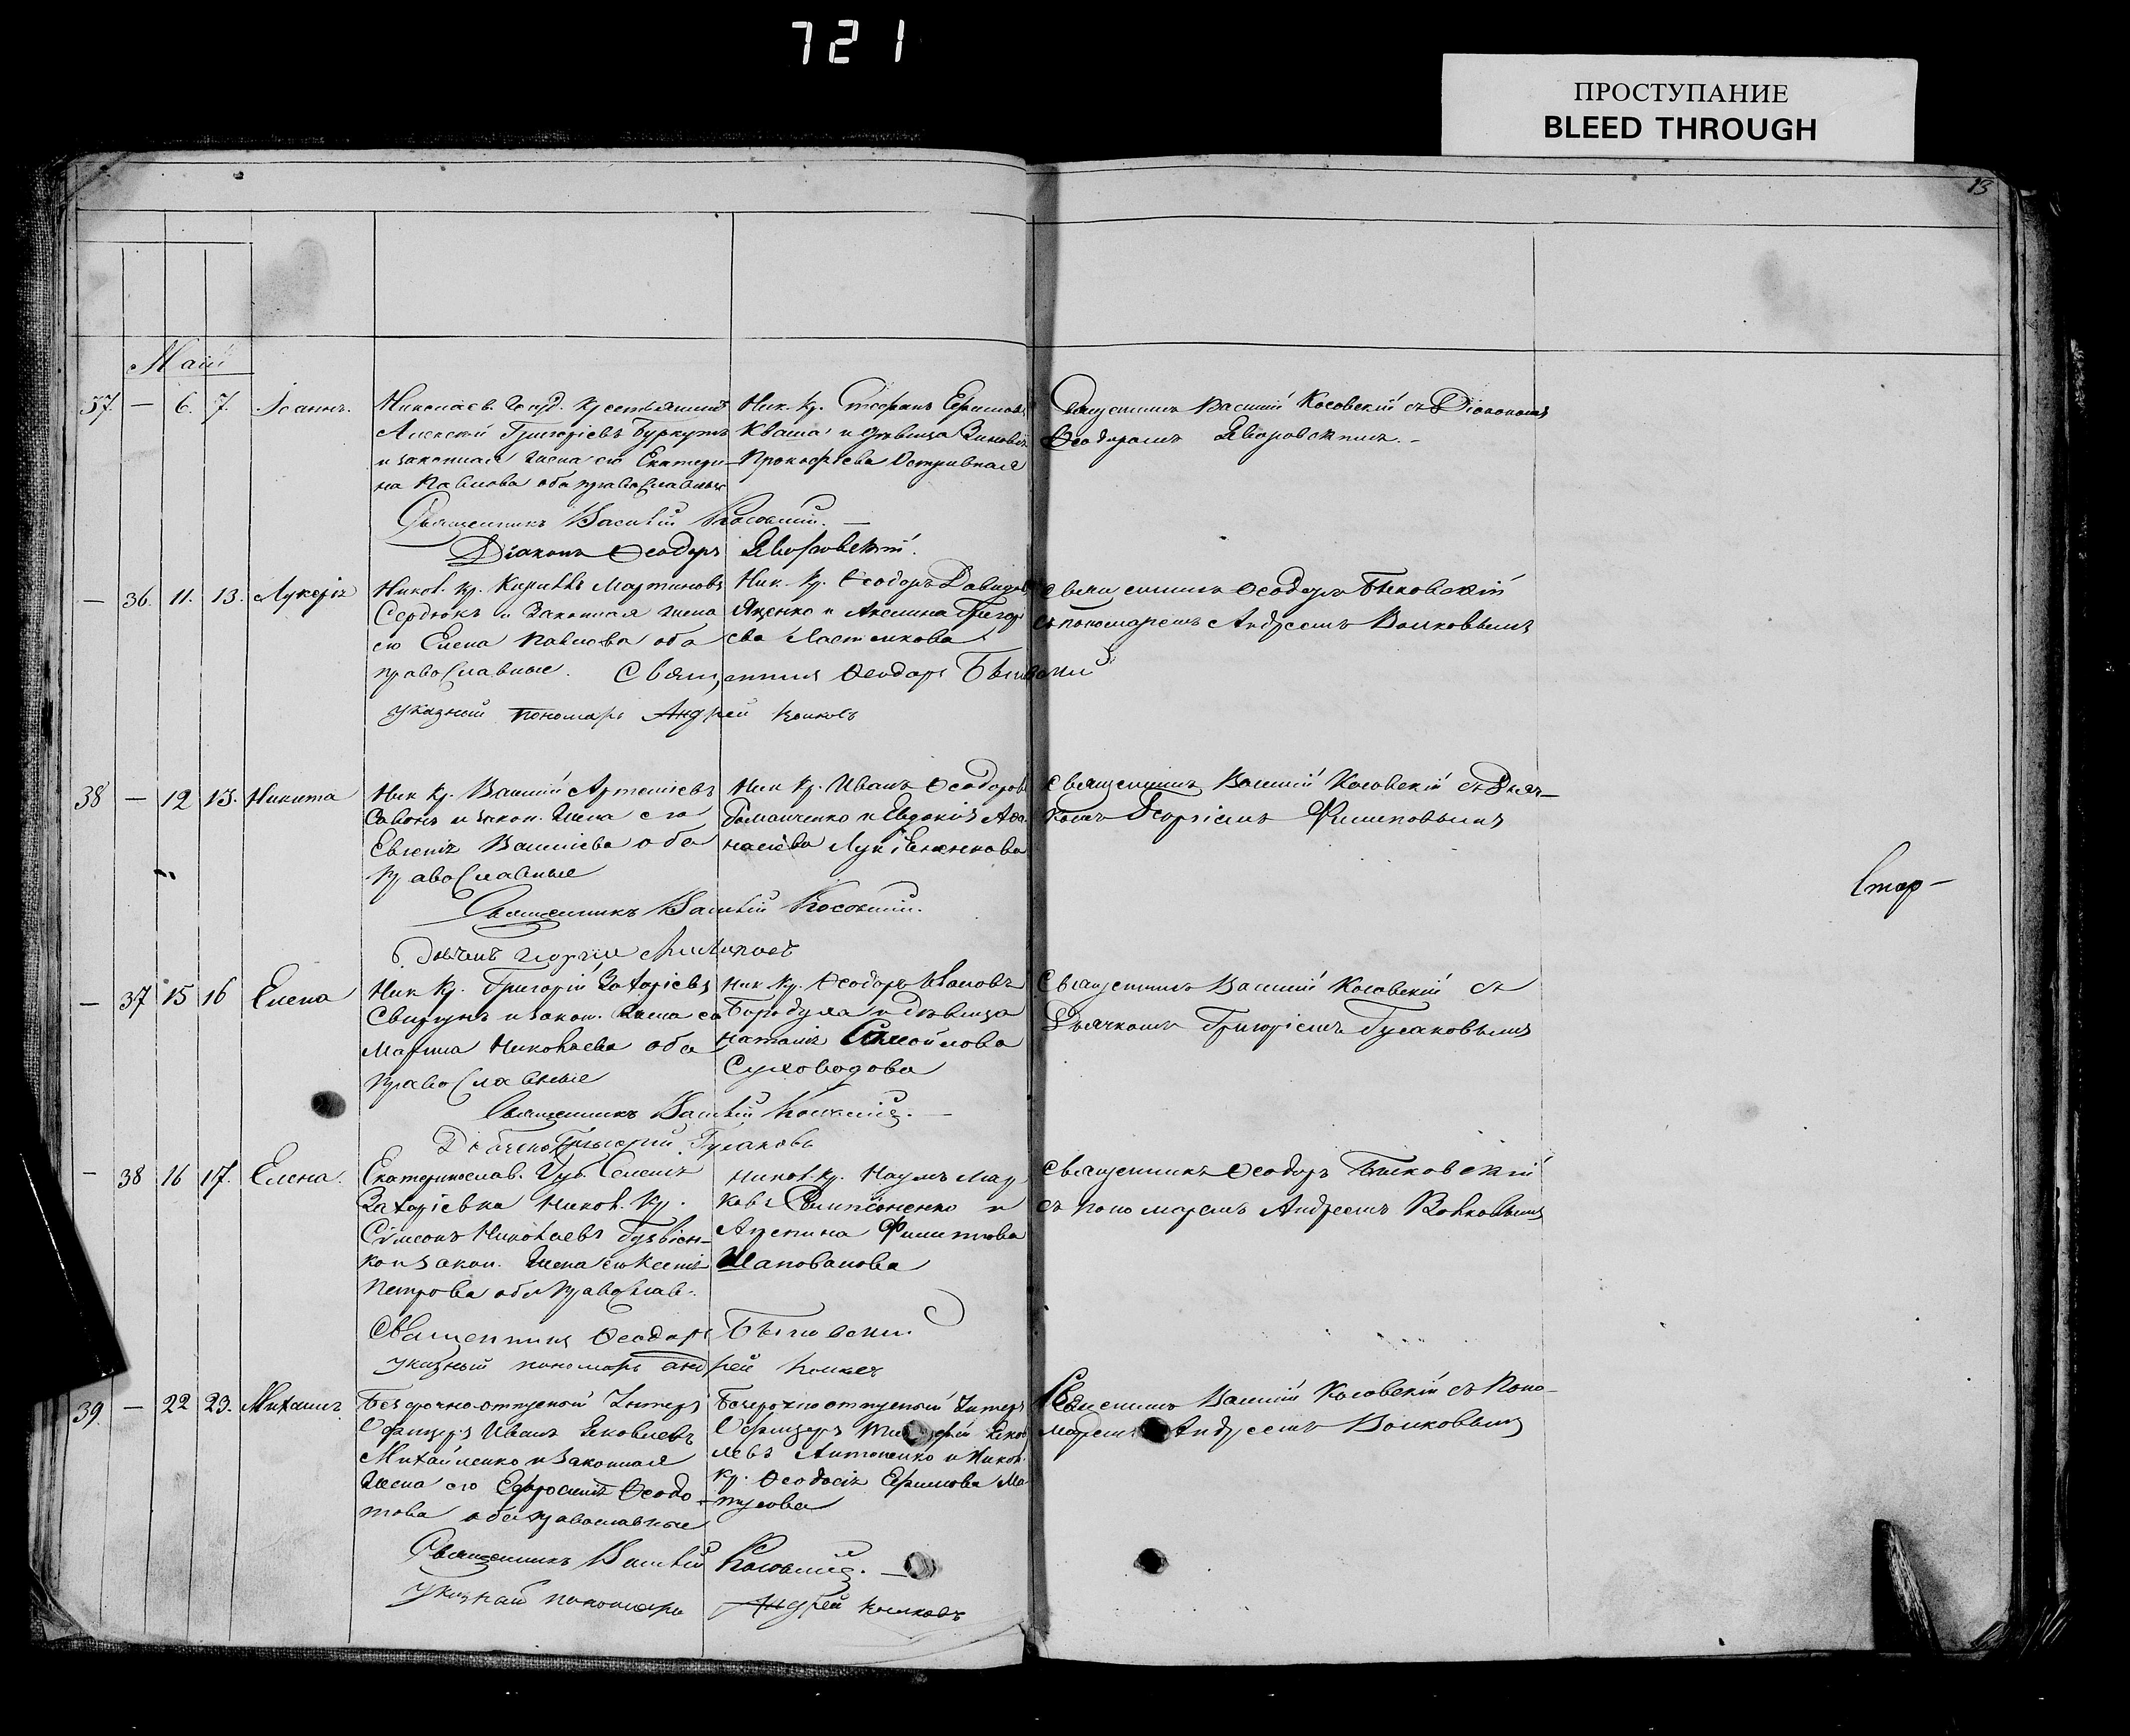 721
ПРОСТУПАНИЕ
BLEED THROUGH
13
Май
37. — 6. 7. Іоаннъ.
Николаев. Госуд. крестьянинъ
Алексій Григоріевъ Буркутъ
и законная жена его Екатери-
на Павлова оба православные
Ник. Кр. Стефанъ Ефимовъ
Кваша и дѣвица Зиновія
Прокофіева Остривная
Священникъ Василій Косовскій съ Діакономъ
Ѳеодоромъ Яворовскимъ. -
Священникъ Василій Косовскій. —
Діаконъ Ѳеодоръ Яворовскій.
— 36. 11. 13. Лукерія
Никол. кр. Кириллъ Мартиновъ
Сердюкъ и законная жена
его Елена Павлова оба
православные.
Ник. Кр. Ѳеодоръ Давидовъ
Яценко и Акелина Григорі
ева
Священникъ Ѳеодоръ Быковскій
съ пономаремъ Андреемъ Волковымъ
Священникъ Ѳеодоръ
указный пономарь Андрей Волковъ
38 — 12 13. Никита
Ник кр. Василій Артеміевъ
и закон. жена его
Евгенія Василіева оба
православные
Ник Кр. Иванъ Ѳеодоровъ
Романченко и Евдокія Аѳа
насіева
Священникъ Василій Косовскій съ Дьяч-
комъ Георгіемъ Филиповымъ
Священникъ Василій Косовскій.
Стар-
— 37 15 16 Елена
Ник Кр. Григорій Захаріевъ
Свиргунъ и закон. жена его
Марина Николаева оба
православные
Ник Кр. Ѳеодоръ Ивановъ
Бородула и дѣвица
Наталія Самойлова
Суховодова
Священникъ Василій Косовскій съ
Дьячкомъ Григоріемъ Гусаковымъ
Священникъ Василій Косовскій. —
Григорій Гусаковъ
— 38 16 17. Елена.
Екатеринослав. Губ. Селенія
Захарієвка Никол. Кр.
Сімеонъ Николаевъ
ко и закон. жена его Ксенія
Петрова оба православ.
Никол. Кр. Наумъ Мар
ковъ и
Агрепина Филиппова
Шаповалова
Священникъ Ѳеодоръ Быковскій
съ пономаремъ Андреемъ Волковымъ
Священникъ Ѳеодоръ
указный пономарь Андрей Волковъ
39. — 22 23. Михаилъ.
Безсрочно-отпускной Унтеръ
Офицеръ Иванъ Яковлевъ
Михайленко и законная
жена его Ефросинія Ѳеодо-
това оба православные
Безсрочноотпускной Унтеръ
Офицеръ Яков
левъ Антоненко и Никол.
Кр. Ѳеодосія Ефимова Ма
тусова
Священникъ Василій Косовскій съ Поно-
маремъ Андреемъ Волковымъ
Священникъ Василій Косовскій. —
Указный пономарь Андрей Волковъ